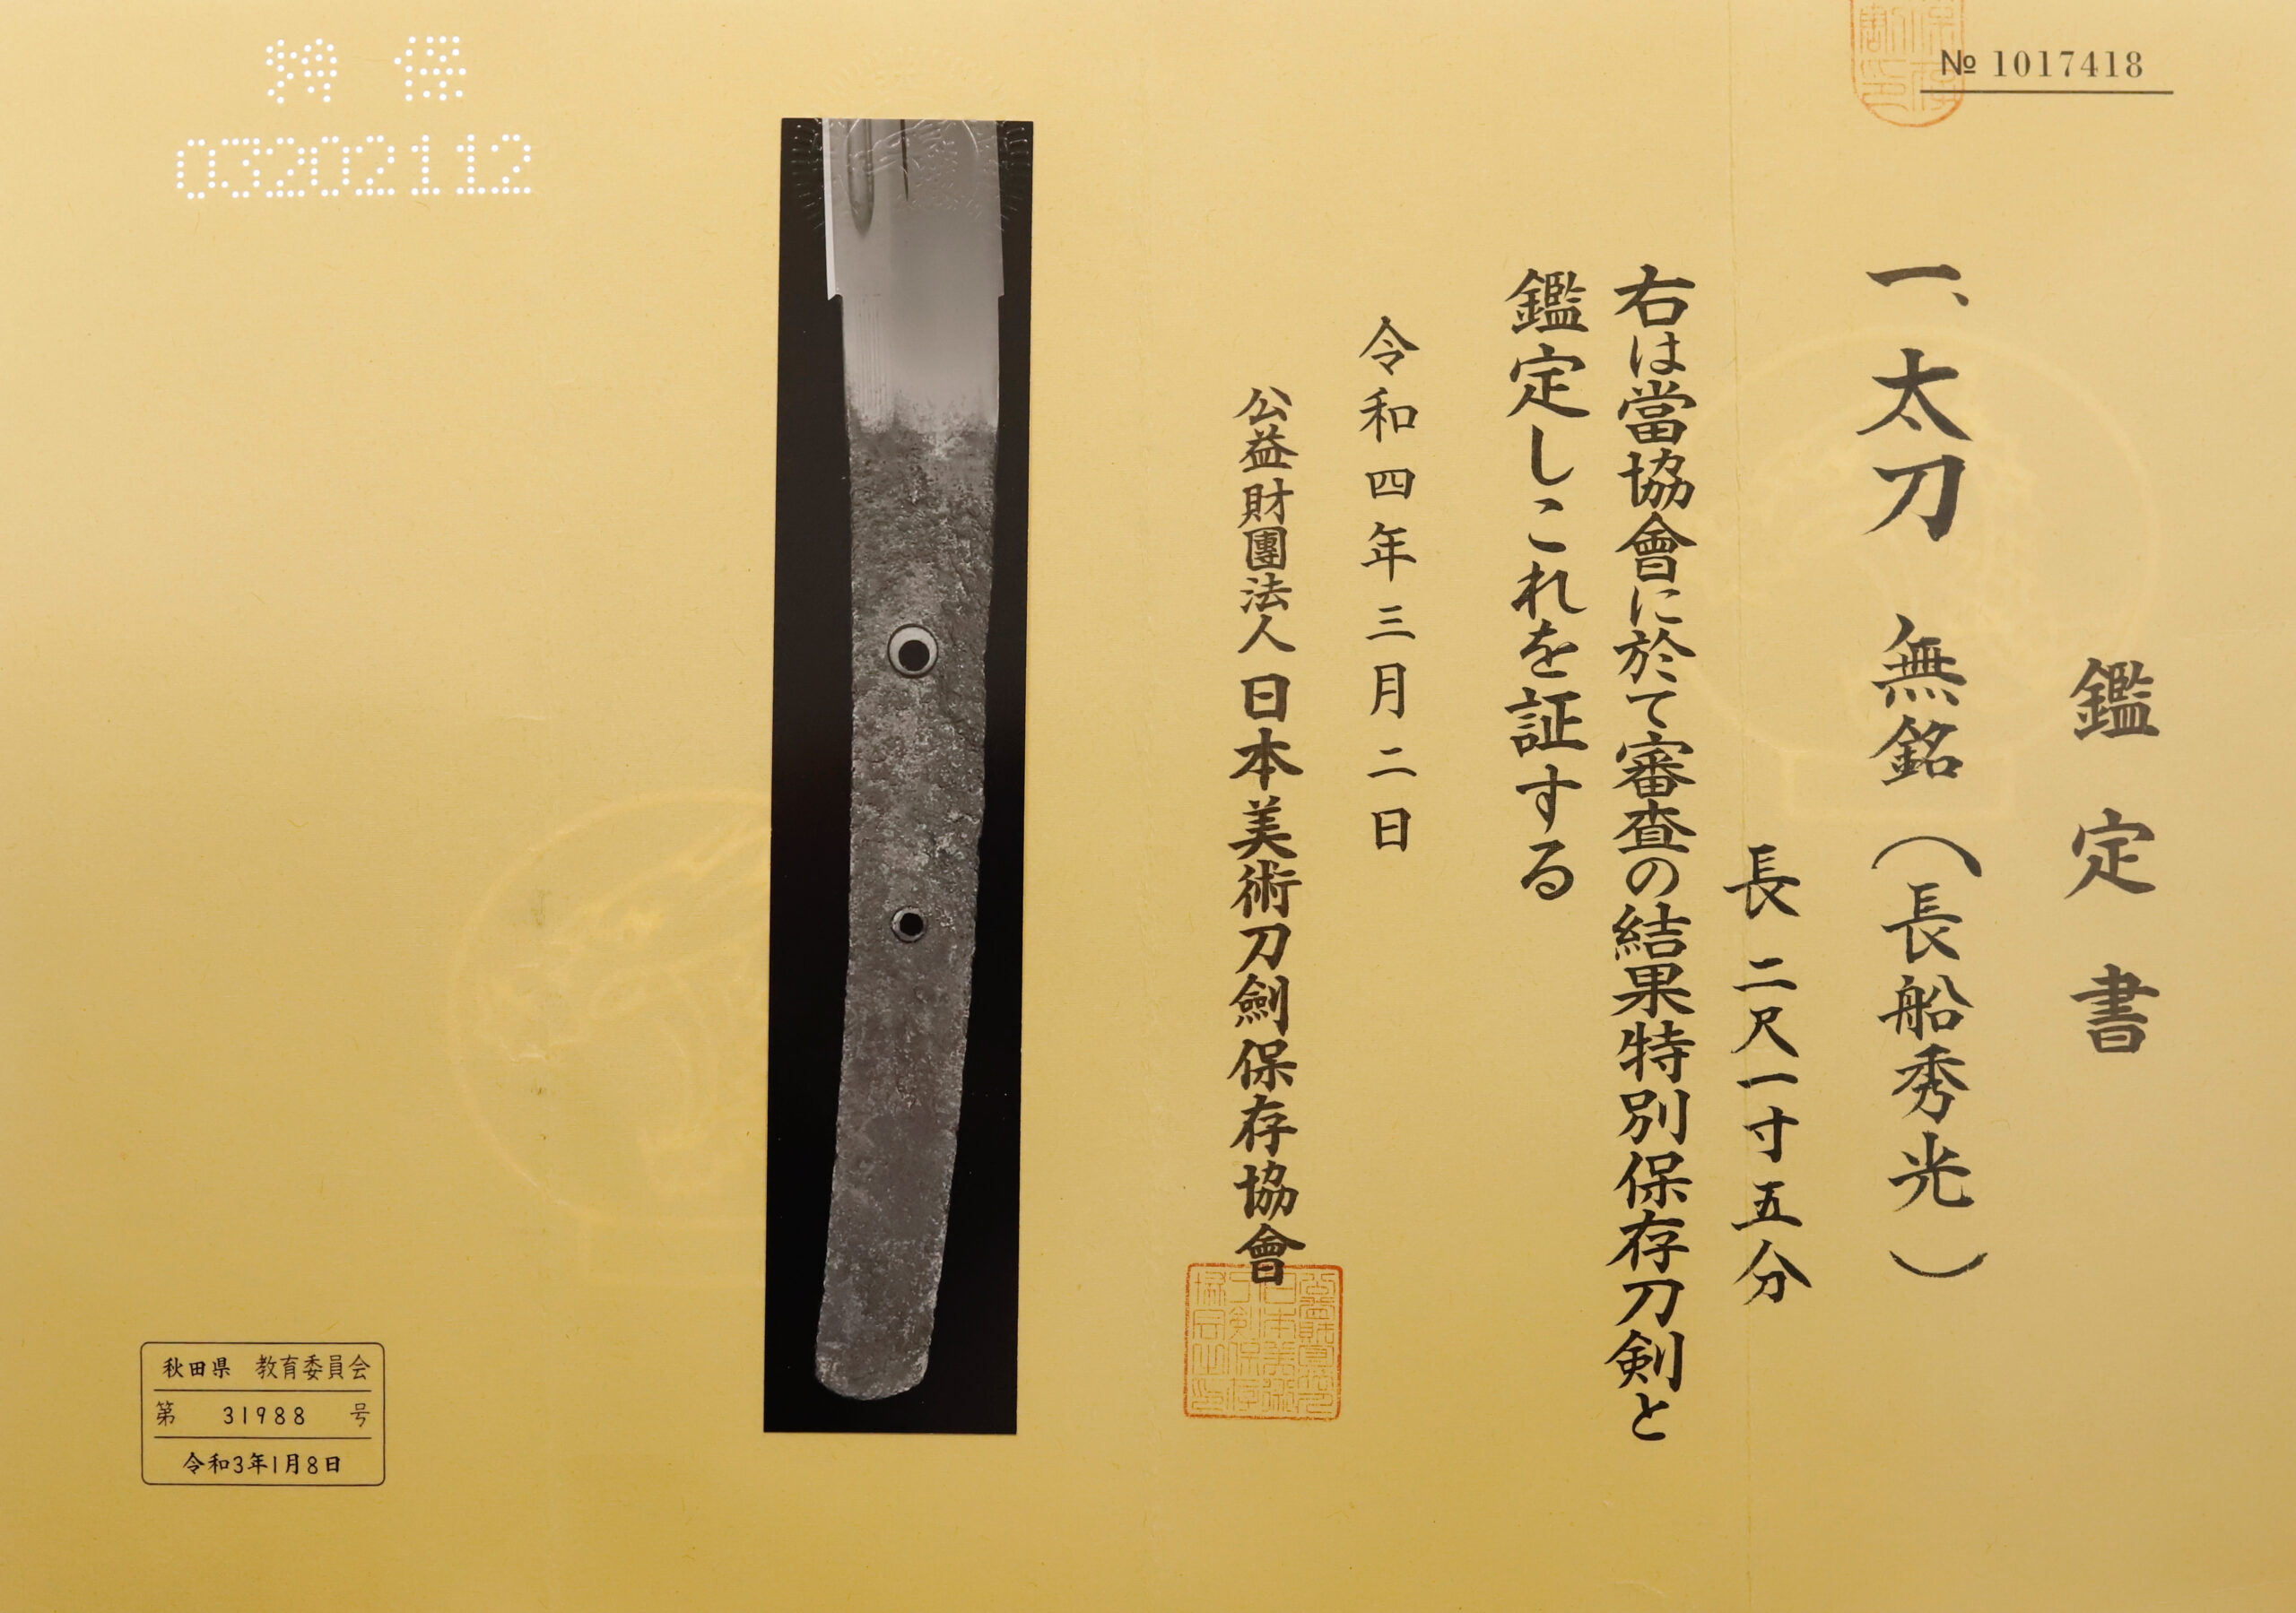 鑑定書
一、太刀 無銘(長船秀光)
長 二尺一寸五分
右は當協會に於て審査の結果特別保存刀剣と
鑑定しこれを証する
令和四年三月二日
公益財團法人 日本美術刀劍保存協會
№ 1017418
特保
03202112
秋田県 教育委員会
第 31988 号
令和3年1月8日